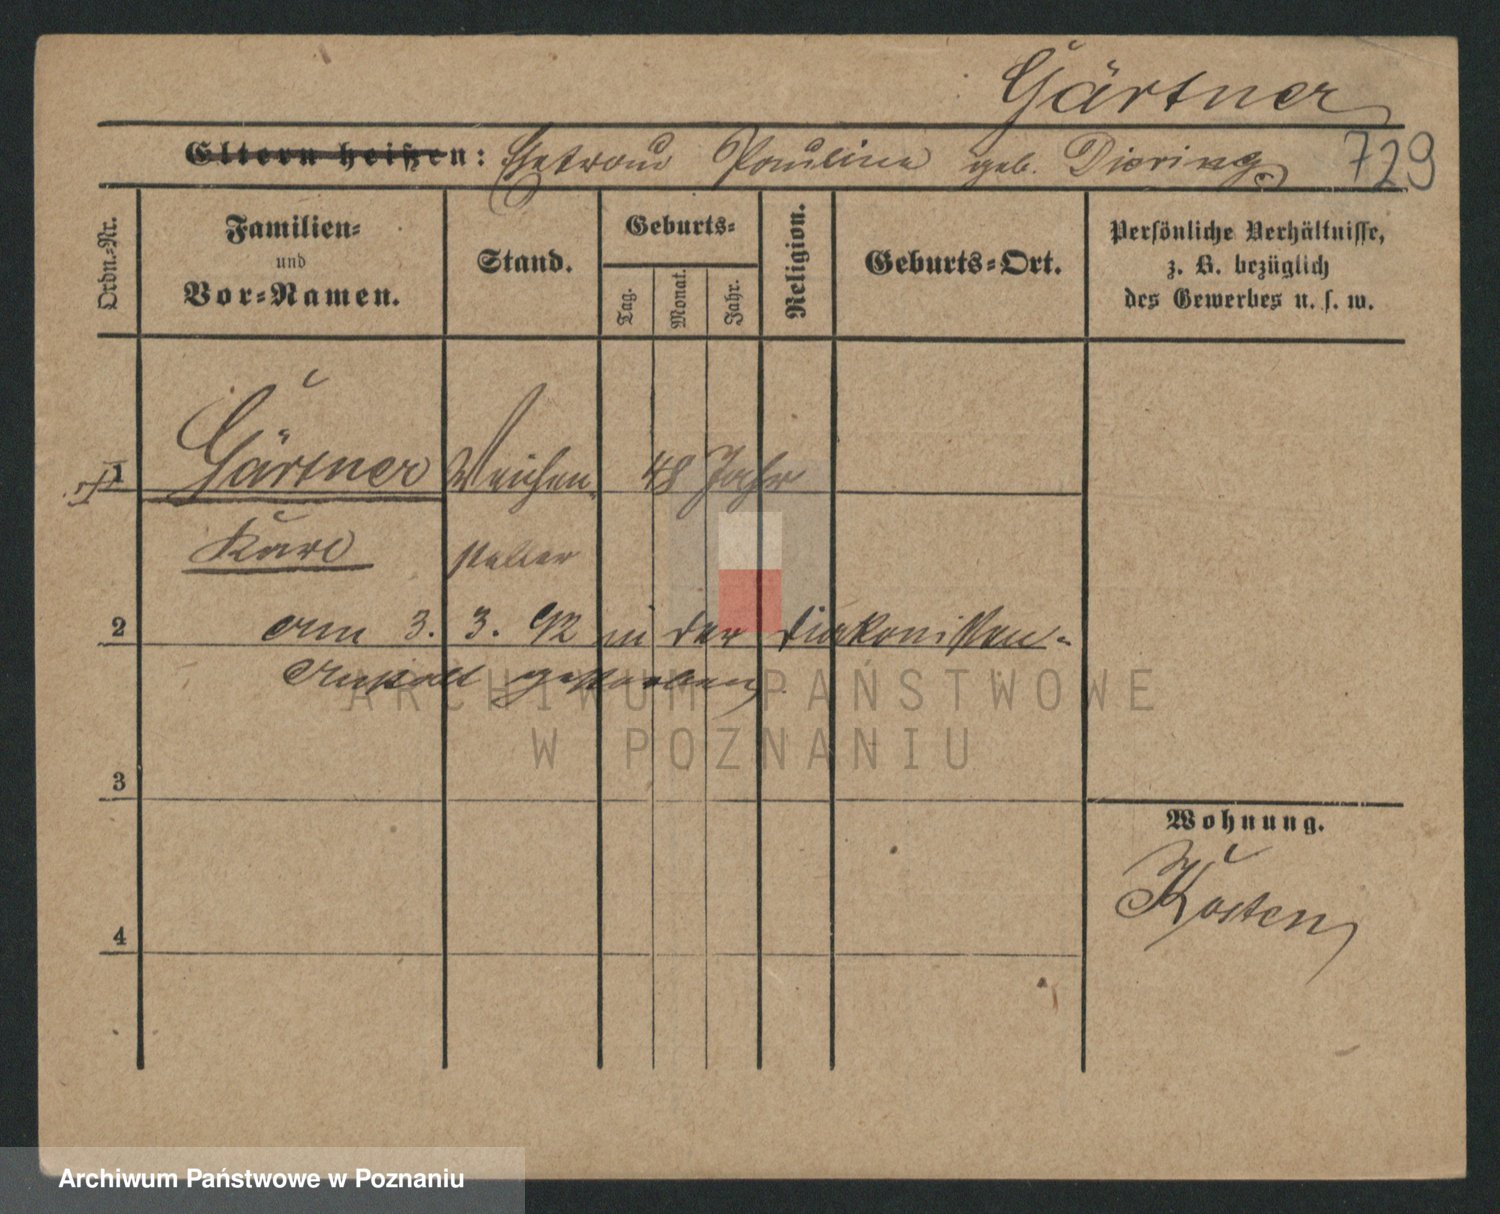 Gärtner
Eltern heißen: Ehefrau Pauline geb. Diering
729
Ordn.-Nr.
Familien-
und
Vor-Namen.
Stand.
Geburts-
Tag.
Monat.
Jahr.
Religion.
Geburts-Ort.
Persönliche Verhältnisse,
z. B. bezüglich
des Gewerbes u. s. w.
1
Gärtner Weichen 48 Jahr
Karl steller
2
am 3. 3. 92 in der Diakonissen-
Anstalt gestorben
ARCHIWUM PAŃSTWOWE
W POZNANIU
3
Wohnung.
Kosten
4
Archiwum Państwowe w Poznaniu